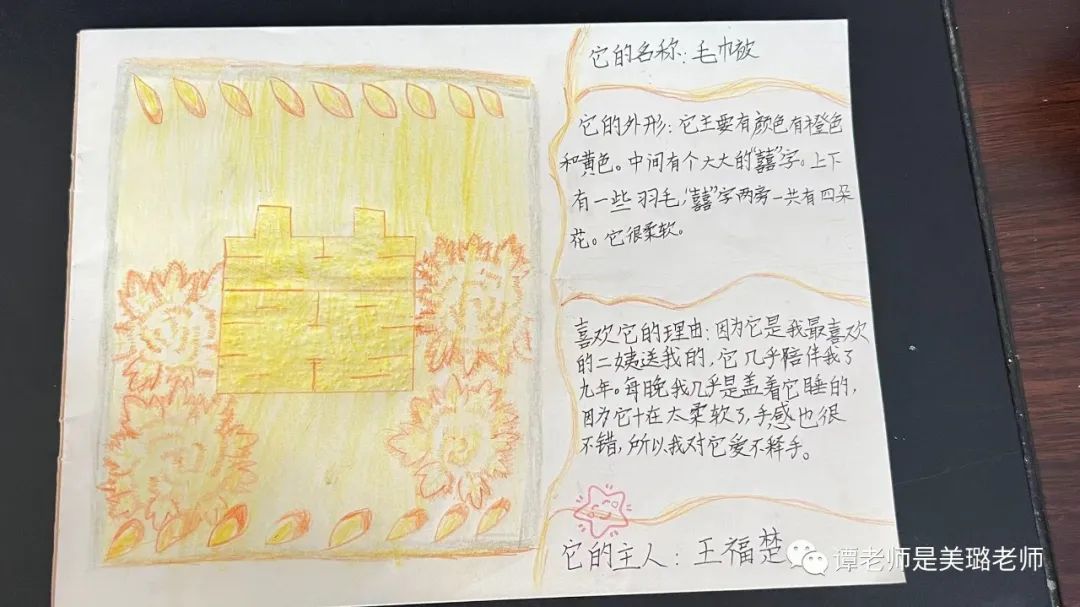 它的名称:毛巾被
它的外形:它主要有颜色有橙色
和黄色。中间有个大大的“囍”字。上下
有一些羽毛,“囍”字两旁一共有四朵
花。它很柔软。
喜欢它的理由:因为它是我最喜欢
的二姨送我的,它几乎陪伴我了
九年。每晚我几乎是盖着它睡的,
因为它十在太柔软了,手感也很
不错,所以我对它爱不释手。
它的主人:王福楚
谭老师是美璐老师